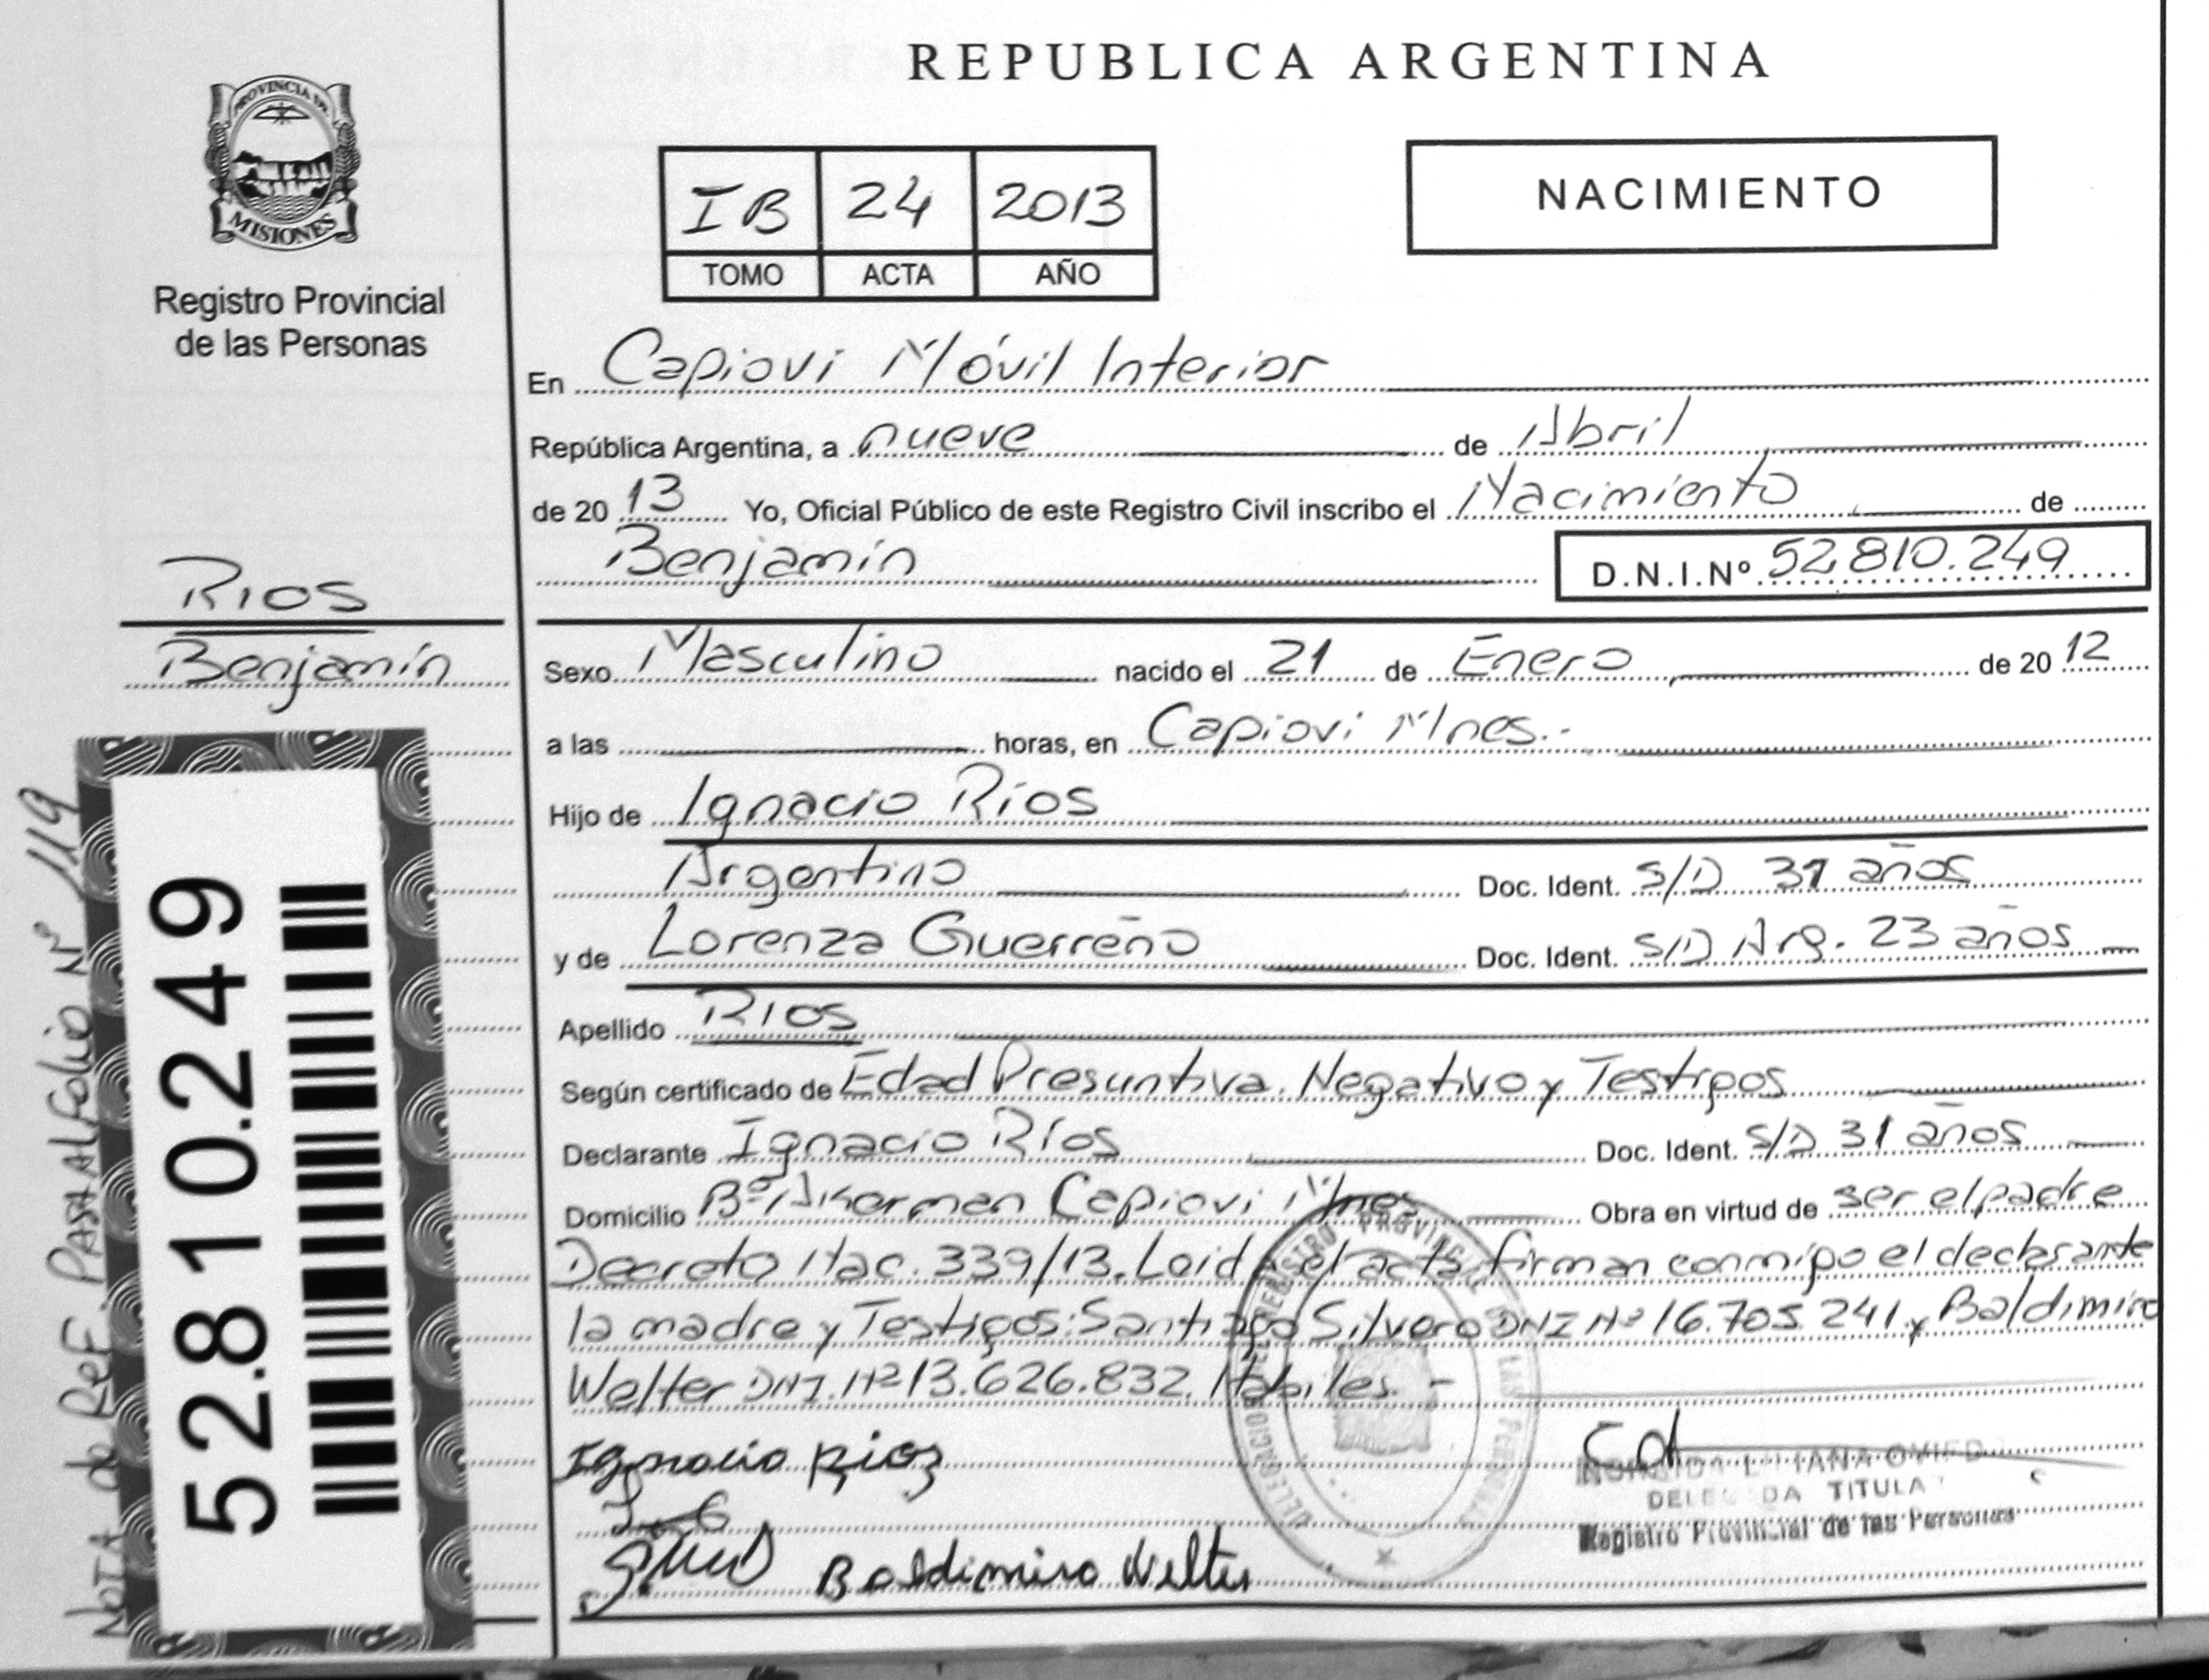 REPUBLICA ARGENTINA
PROVINCIA DE
MISIONES
Registro Provincial
de las Personas
IB 24 2013
TOMO ACTA AÑO
NACIMIENTO
En Capiovi Móvil Interior
República Argentina, a nueve de Abril
de 20 13 Yo, Oficial Público de este Registro Civil inscribo el Nacimiento de
Benjamín D.N.I.Nº 52.810.249
Rios
Benjamín
Sexo Masculino nacido el 21 de Enero de 20 12
a las horas, en Capiovi Mnes.-
Hijo de Ignacio Ríos
Argentino Doc. Ident. S/D 31 años
y de Lorenza Guerreño Doc. Ident. S/D Arg. 23 años
Apellido Rios
Según certificado de Edad Presuntiva. Negativo y Testigos
Declarante Ignacio Ríos Doc. Ident. S/D 31 años
Domicilio Bº Akerman Capiovi Mnes Obra en virtud de ser el padre
Decreto Nac. 339/13. Leida el acta, firman conmigo el declarante
la madre y Testigos: Santiago Silvero DNI Nº 16.705.241 y Baldimiro
Welter DNI. Nº 13.626.832. Hábiles. -
Ignacio Rios
Baldimiro Welter
REGISTRO PROVINCIAL DE LAS PERSONAS
LILIANA OVIEDO
DELEGADA TITULAR
Registro Provincial de las Personas
52.810.249
NOTA de REF. PASA AL folio Nº 119